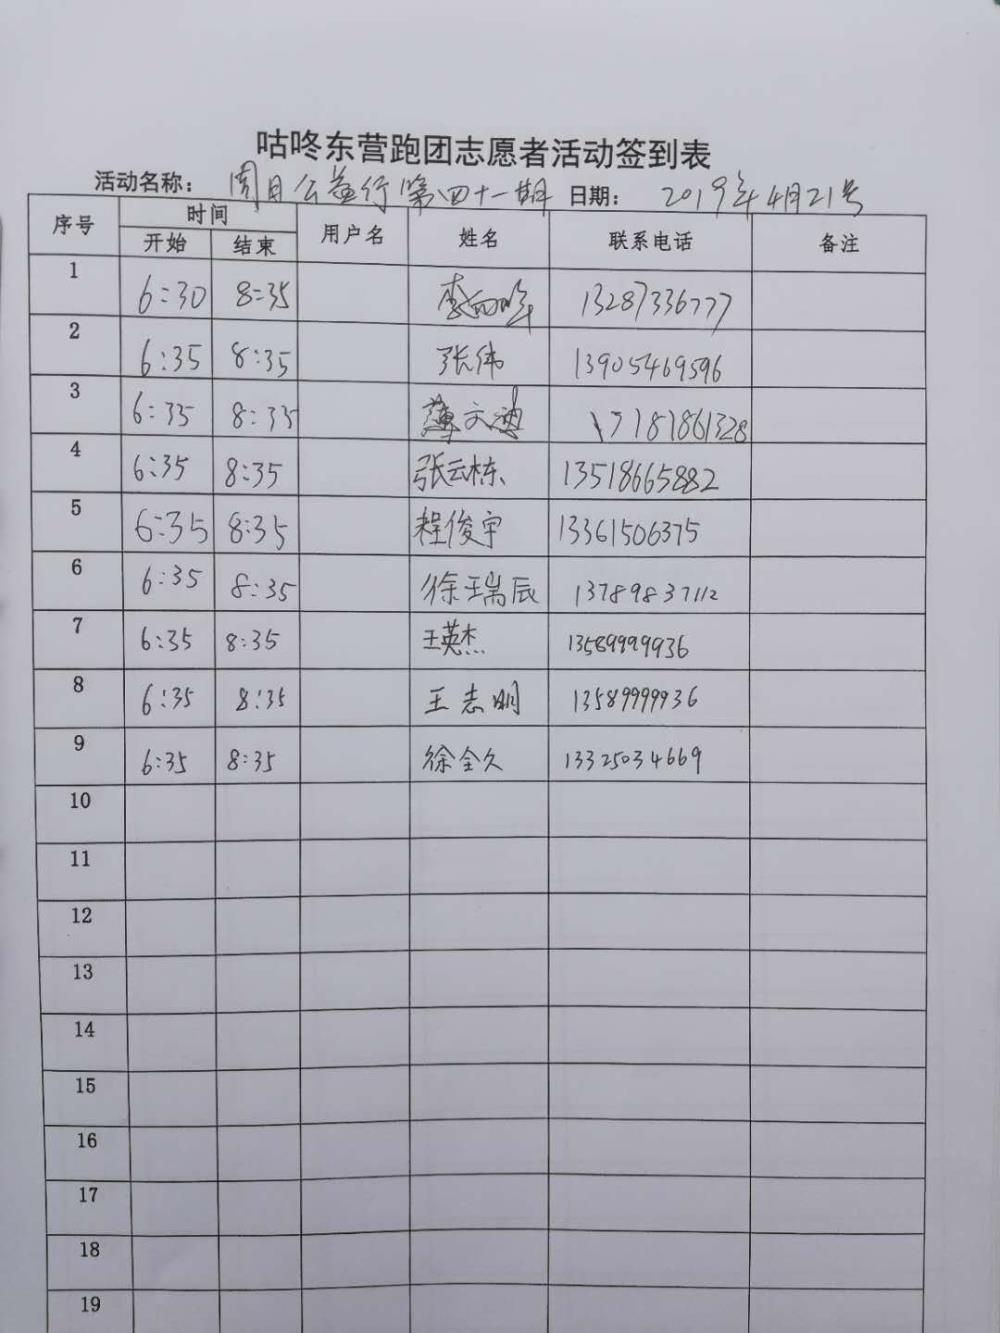 咕咚东营跑团志愿者活动签到表
活动名称： 周日公益行第四十一期 日期： 2019年4月21号
序号 时间 用户名 姓名 联系电话 备注
开始 结束
1 6:30 8:35 李 13287336777
2 6:35 8:35 张伟 13905469596
3 6:35 8:35 薄文迪 17181861328
4 6:35 8:35 张云栋 13518665882
5 6:35 8:35 程俊宇 13361506375
6 6:35 8:35 徐瑞辰 13789837112
7 6:35 8:35 王英杰 13589999936
8 6:35 8:35 王志明 13589999936
9 6:35 8:35 徐全久 13325034669
10
11
12
13
14
15
16
17
18
19